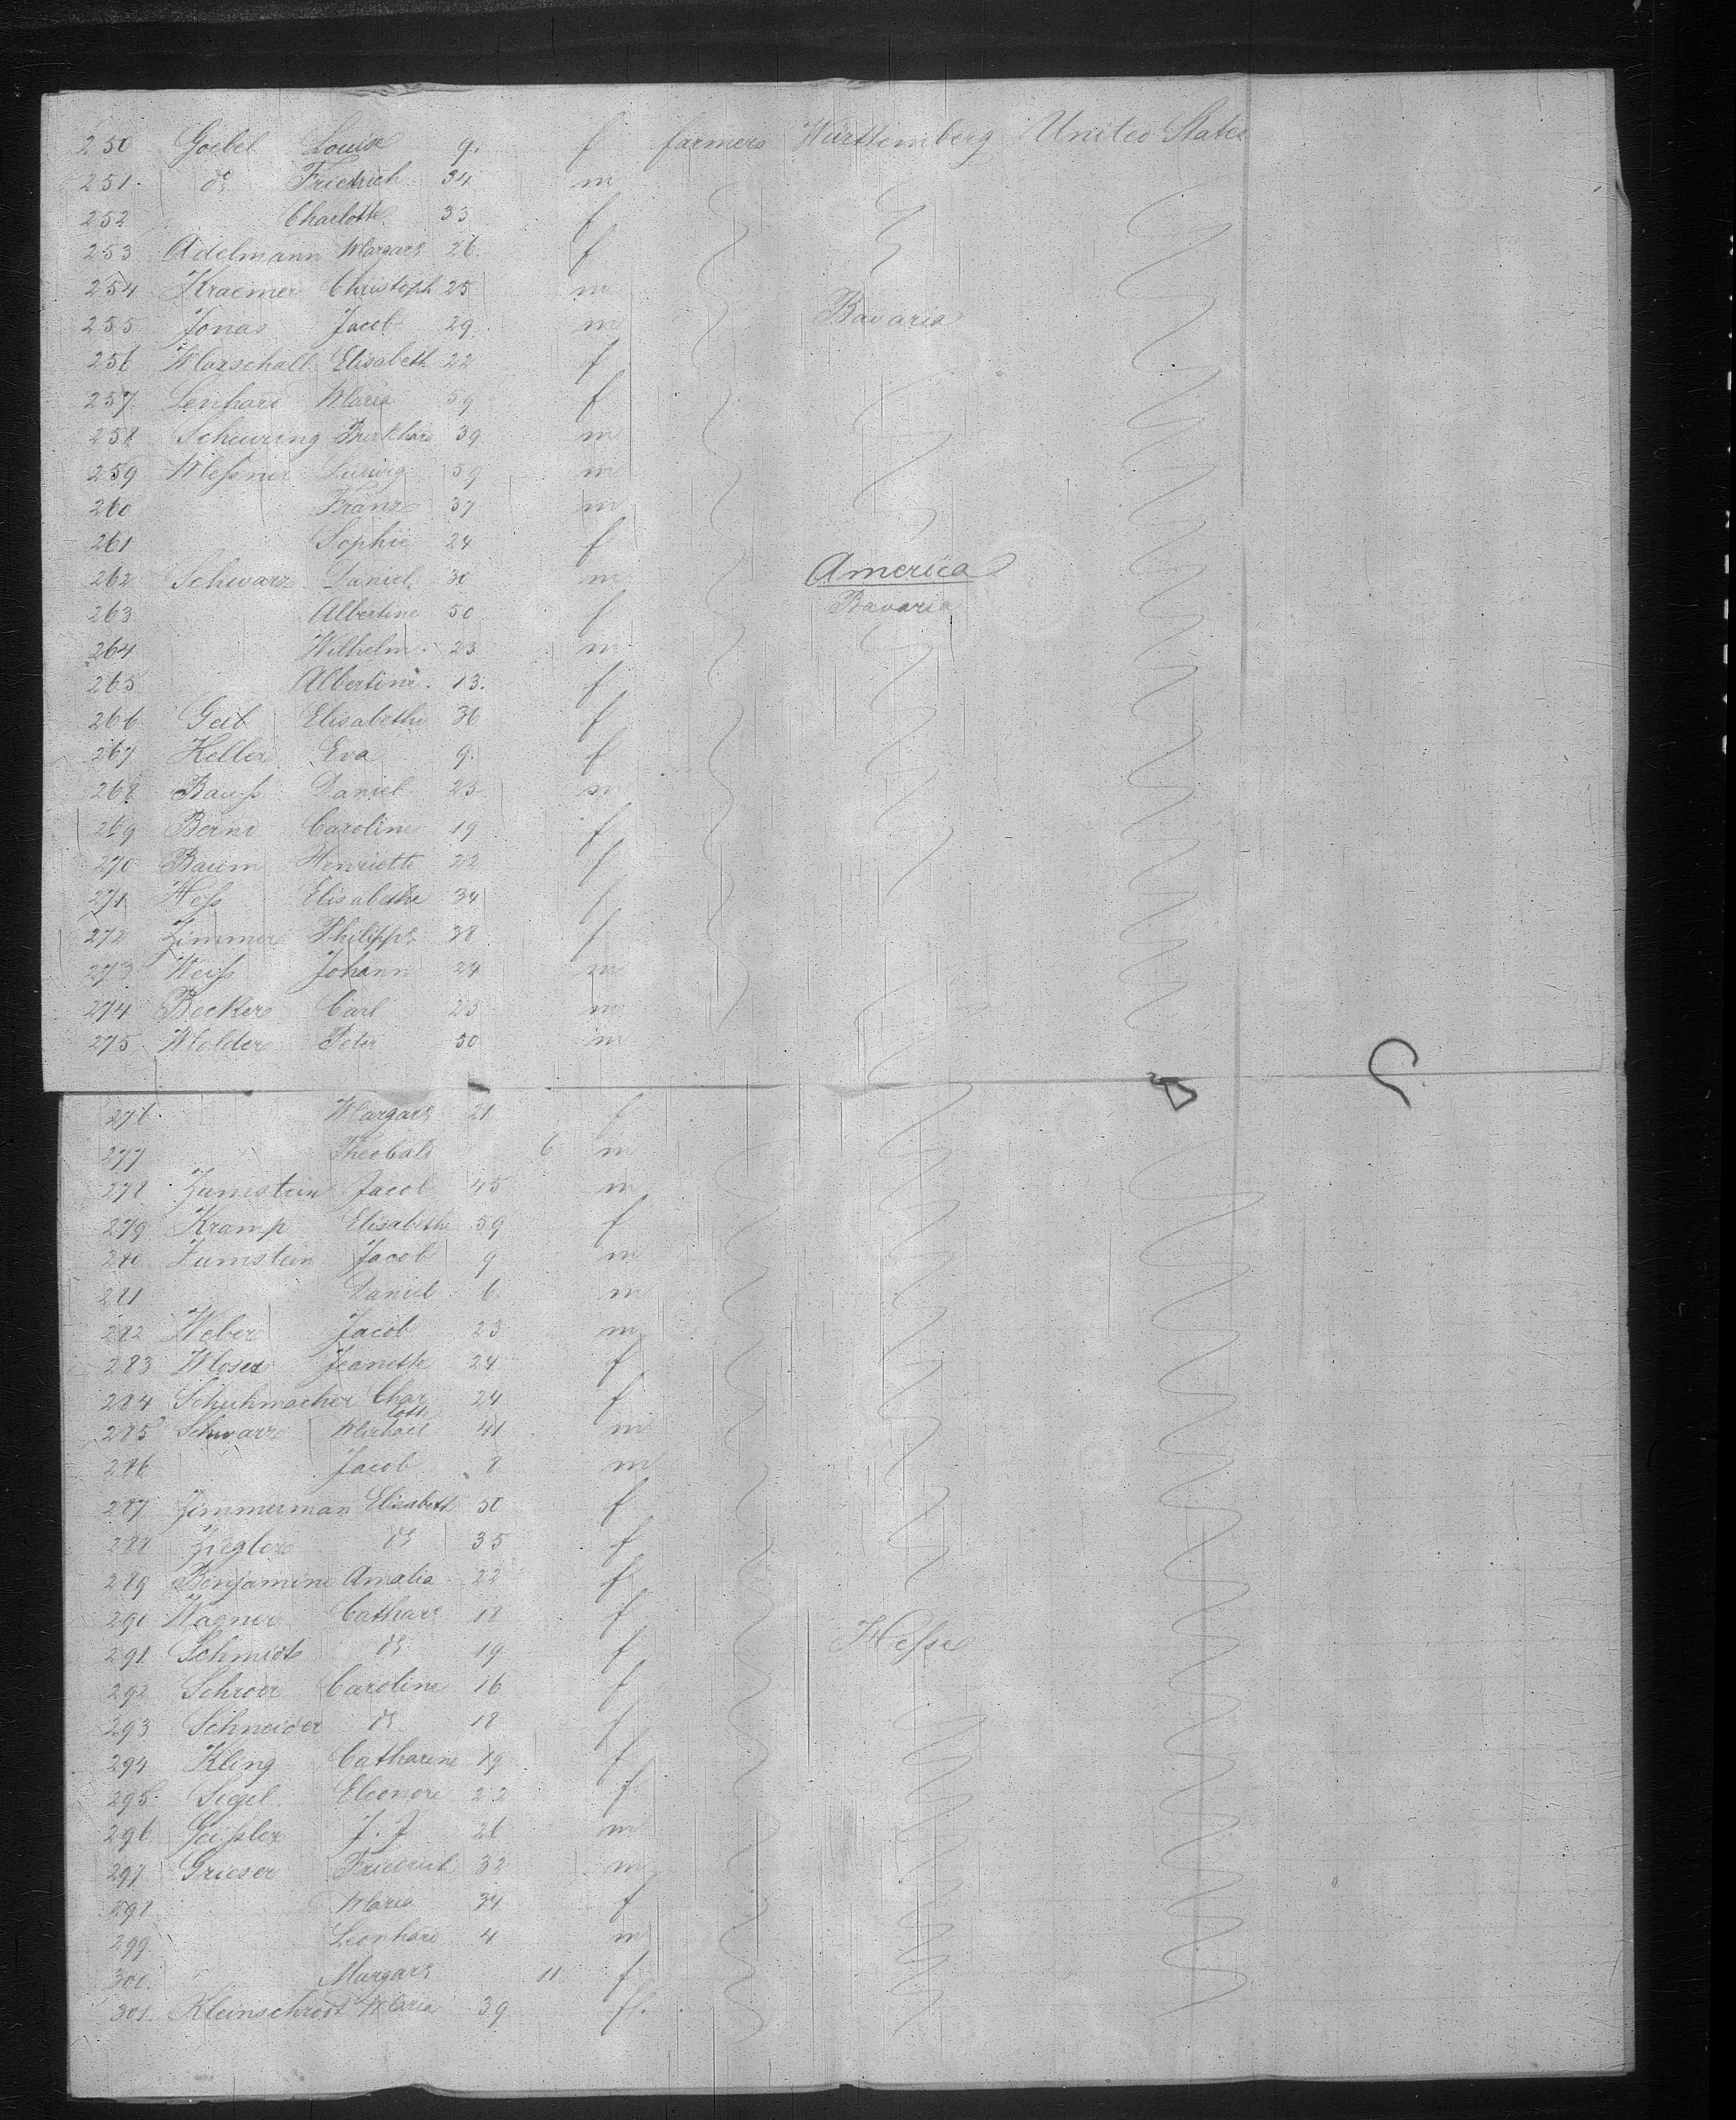 250 Goebel Louise 9. f farmers Württemberg United States
251. do Friedrich 34 m
252 Charlotte 33 f
253 Adelmann Margar. 26. f
254 Kraemer Christoph 25 m
255 Jonas Jacob 29 m Bavaria
256 Marschall Elisabeth 22 f
257 Lenhard Maria 59 f
258 Scheuring Burkhard 39. m
259 Meßner Ludwig 59 m
260 Franz 37 m
261 Sophie 24 f
262 Schwarz Daniel 30 m America
263 Albertine 50 f Bavaria
264 Wilhelm 23 m
265 Albertine. 13. f
266 Geib Elisabethe 36 f
267 Keller Eva 9. f
268 Bauß Daniel 23 m
269 Bernd Caroline 19 f
270 Baum Henriette 22 f
271 Heß Elisabethe 34 f
272 Zimmer Philipp. 38 f
273 Weiß Johann 24 m
274 Becker Carl 23 m
275 Molder Peter 50 m
276. Margar. 21 f
277 Theobald 6 m
278 Zumstein Jacob 45 m
279 Kramp Elisabethe 59 f
280 Zumstein Jacob 9 m
281 Daniel 6. m
282 Weber Jacob 23 m
283 Moser Jeanette 24 f
284 Schuhmacher Char 24 f
lotte
285 Schwarz Michael 41 m
286 Jacob 8 m
287 Zimmerman Elisabeth 58 f
288 Ziegler do 35 f
289 Benjamine Amalia 22 f
290 Wagner Cathar. 18 f
291 Schmidt do 19 f Hesse
292 Schroer Caroline 16 f
293 Schneider do 18 f
294 Kling Catharine 19 f
295. Siegel Eleonore 22 f
296 Geißler J. J 26 m
297 Grieser Friedrich 32 m
298 Maria 34 f
299 Leonhard 4 m
300. Margar. 11 f
301. Kleinschrodt Maria 39 f.